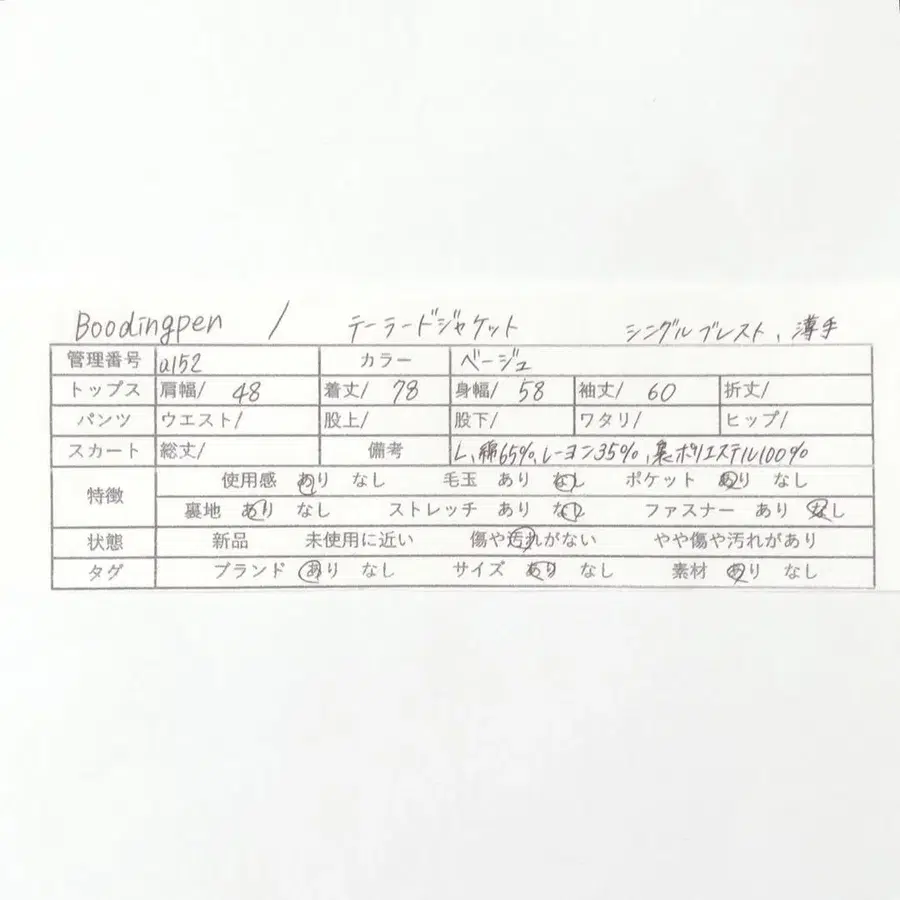 Boodingpen / テーラードジャケット シングルブレスト、薄手
管理番号 a152 カラー ベージュ
トップス 肩幅/ 48 着丈/ 78 身幅/ 58 袖丈/ 60 折丈/
パンツ ウエスト/ 股上/ 股下/ ワタリ/ ヒップ/
スカート 総丈/ 備考 L、綿65%、レーヨン35%、裏ポリエステル100%
特徴 使用感 あり なし 毛玉 あり なし ポケット あり なし
裏地 あり なし ストレッチ あり なし ファスナー あり なし
状態 新品 未使用に近い 傷や汚れがない やや傷や汚れがあり
タグ ブランド あり なし サイズ あり なし 素材 あり なし